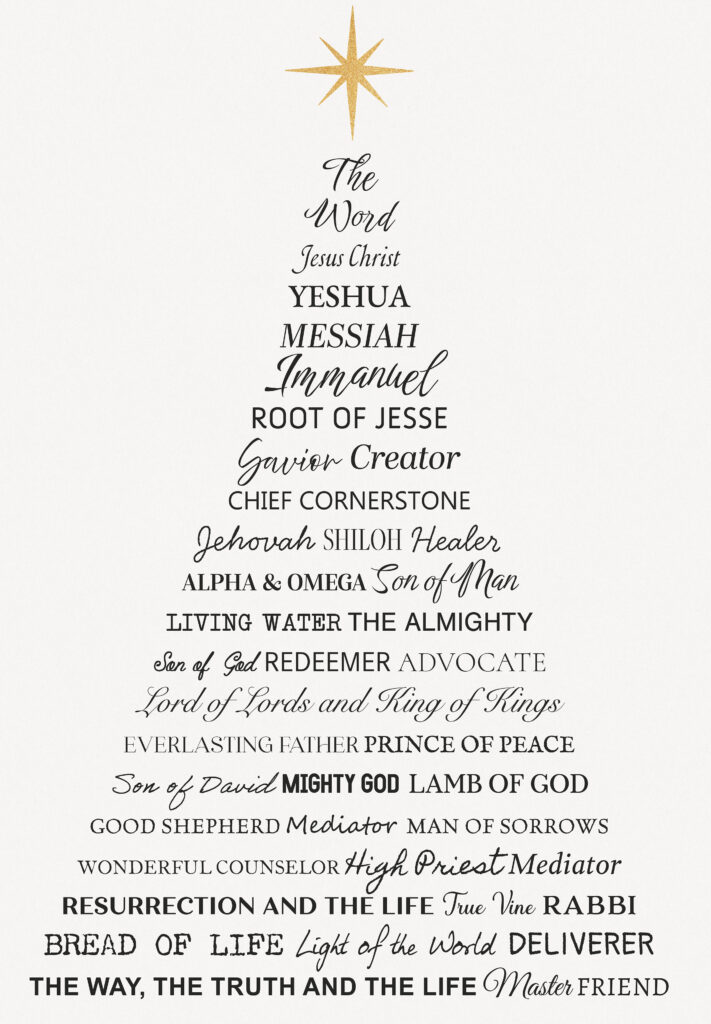 The
Word
Jesus Christ
YESHUA
MESSIAH
Immanuel
ROOT OF JESSE
Savior Creator
CHIEF CORNERSTONE
Jehovah SHILOH Healer
ALPHA & OMEGA Son of Man
LIVING WATER THE ALMIGHTY
Son of God REDEEMER ADVOCATE
Lord of Lords and King of Kings
EVERLASTING FATHER PRINCE OF PEACE
Son of David MIGHTY GOD LAMB OF GOD
GOOD SHEPHERD Mediator MAN OF SORROWS
WONDERFUL COUNSELOR High Priest Mediator
RESURRECTION AND THE LIFE True Vine RABBI
BREAD OF LIFE Light of the World DELIVERER
THE WAY, THE TRUTH AND THE LIFE Master FRIEND